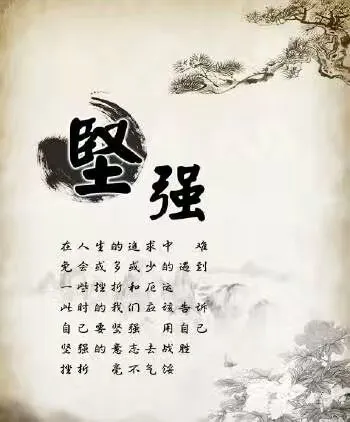 坚强
在人生的追求中 难
免会或多或少的遇到
一些挫折和厄运
此时的我们应该告诉
自己要坚强 用自己
坚强的意志去战胜
挫折 毫不气馁